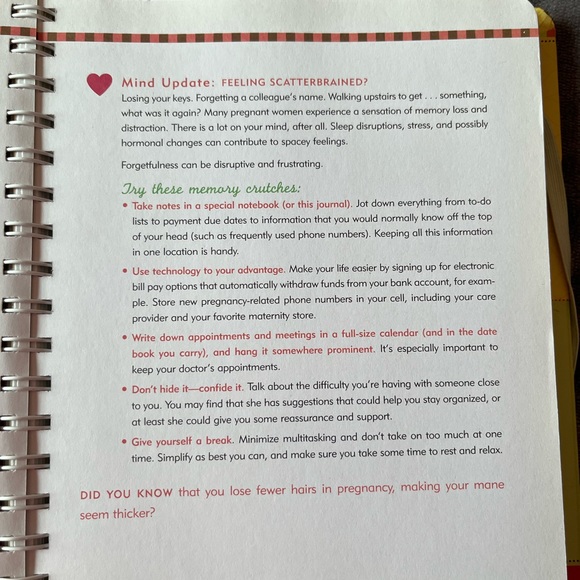 Mind Update: FEELING SCATTERBRAINED?
Losing your keys. Forgetting a colleague's name. Walking upstairs to get . . . something,
what was it again? Many pregnant women experience a sensation of memory loss and
distraction. There is a lot on your mind, after all. Sleep disruptions, stress, and possibly
hormonal changes can contribute to spacey feelings.
Forgetfulness can be disruptive and frustrating.
Try these memory crutches:
• Take notes in a special notebook (or this journal). Jot down everything from to-do
lists to payment due dates to information that you would normally know off the top
of your head (such as frequently used phone numbers). Keeping all this information
in one location is handy.
• Use technology to your advantage. Make your life easier by signing up for electronic
bill pay options that automatically withdraw funds from your bank account, for exam-
ple. Store new pregnancy-related phone numbers in your cell, including your care
provider and your favorite maternity store.
• Write down appointments and meetings in a full-size calendar (and in the date
book you carry), and hang it somewhere prominent. It's especially important to
keep your doctor's appointments.
• Don't hide it—confide it. Talk about the difficulty you're having with someone close
to you. You may find that she has suggestions that could help you stay organized, or
at least she could give you some reassurance and support.
• Give yourself a break. Minimize multitasking and don't take on too much at one
time. Simplify as best you can, and make sure you take some time to rest and relax.
DID YOU KNOW that you lose fewer hairs in pregnancy, making your mane
seem thicker?